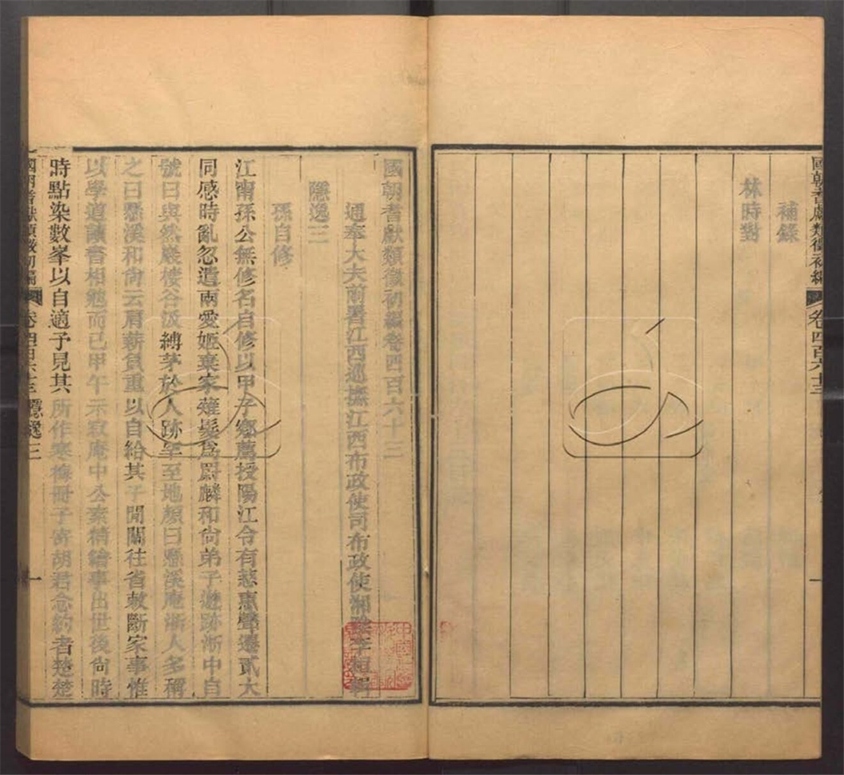 補錄
林時對
國朝耆獻類徵初編
卷四百六十三
國朝耆獻類徵初編卷四百六十三
通奉大夫前署江西巡撫江西布政使司布政使湘陰李桓輯
隱逸三
孫自修
江甯孫公無修名自修以甲子鄉薦授陽江令有慈惠聲遷貳大
同感時亂忽遣兩愛姬棄家薙髮為爵麟和尙弟子遯跡浙中自
號曰與然巖棲谷汲縛茅於人跡罕至地顏曰懸溪庵浙人多稱
之曰懸溪和尙云肩薪負重以自給其子間關往省敕斷家事惟
以學道讀書相勉而已甲午示寂庵中公素精繪事出世後尙時
時點染數峯以自適予見其所作寒梅冊子寄胡君念約者楚楚
國朝耆獻類徵初編
卷四百六十三 隱逸三
一